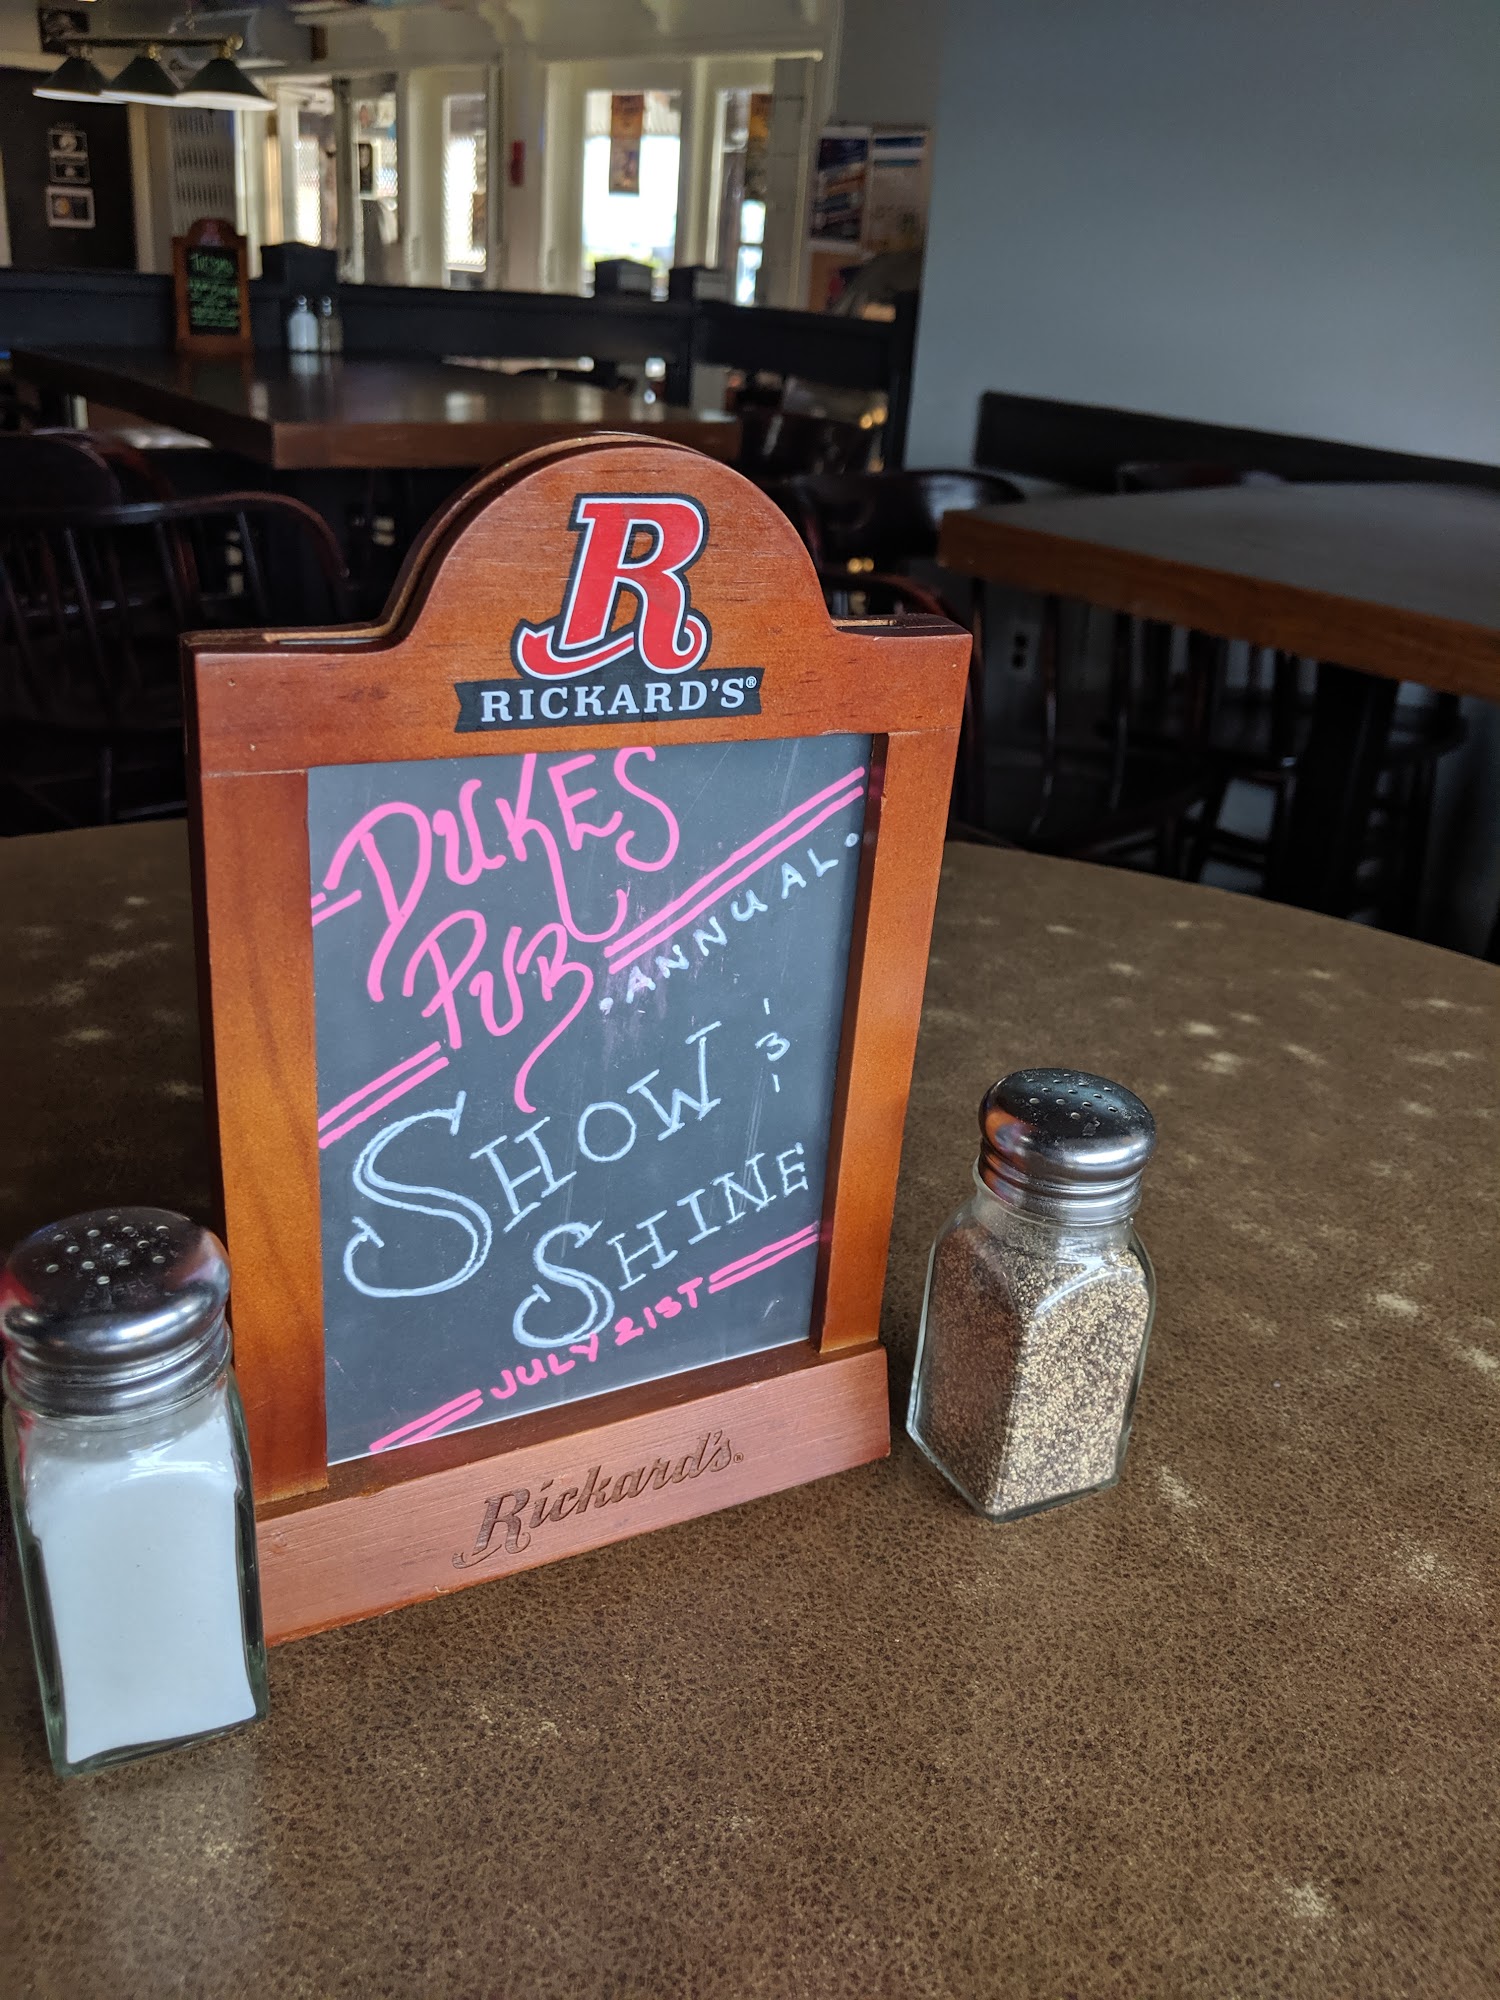 R
RICKARD'S®
DUKES
PUB
'ANNUAL'
SHOW
'3'
SHINE
JULY 21ST
Rickard's®